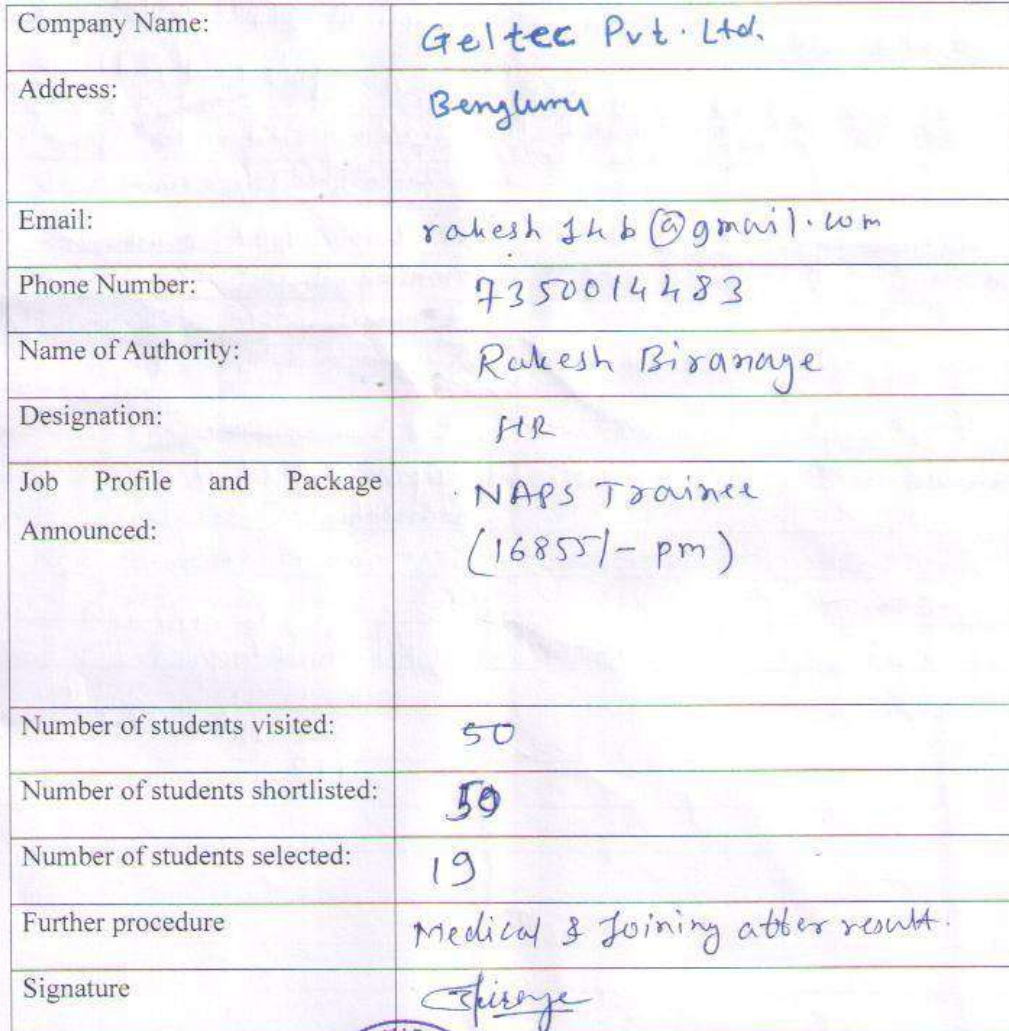 Company Name: Geltec Pvt. Ltd.
Address: Bengluru
Email: @gmail.com
Phone Number: 7350014483
Name of Authority: Rakesh Biranage
Designation: HR
Job Profile and Package NAPS Trainee
Announced: (16855/- pm)
Number of students visited: 50
Number of students shortlisted: 50
Number of students selected: 19
Further procedure Medical & Joining after result.
Signature